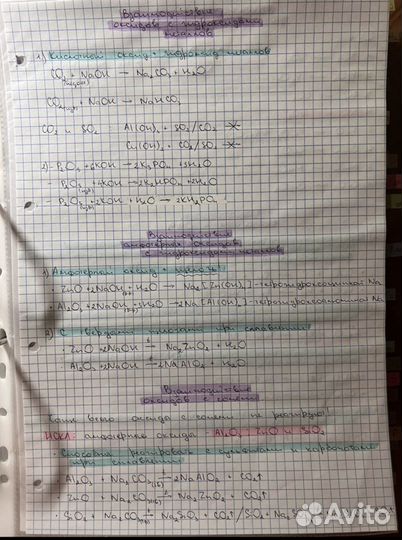 Взаимодействие
оксидов с гидроксидами
металлов
1) Кислотный оксид + гидроксид металлов
CO₂ + NaOH → Na₂CO₃ + H₂O
CO₂ + NaOH → NaHCO₃
CO₂ и SO₂ : Al(OH)₃ + SO₂/CO₂ -×-
Cu(OH)₂ + CO₂/SO₂ -×-
2) - P₂O₅ + 6KOH → 2K₃PO₄ + 3H₂O
- P₂O₅ + 4KOH → 2K₂HPO₄ + 2H₂O
- P₂O₅ + 2KOH + H₂O → 2KH₂PO₄
Взаимодействие
амфотерных оксидов
с гидроксидами металлов
1) Амфотерный оксид + щелочь
· ZnO + 2NaOH + H₂O → Na₂[Zn(OH)₄] - тетрагидроксоцинкат Na
· Al₂O₃ + 2NaOH + 3H₂O → 2Na[Al(OH)₄] - тетрагидроксоалюминат Na
2) С твердыми щелочами при сплавлении
· ZnO + 2NaOH t→ Na₂ZnO₂ + H₂O
· Al₂O₃ + 2NaOH t→ 2NaAlO₂ + H₂O
Взаимодействие
оксидов с солями
оксида с солями не реагируют!
ИСКЛ: амфотерные оксиды - Al₂O₃, ZnO и SiO₂
· Способны реагировать с сульфитами и карбонатами
при сплавлении
· Al₂O₃ + Na₂CO₃(тв) t→ 2NaAlO₂ + CO₂↑
· ZnO + Na₂CO₃(тв) t→ Na₂ZnO₂ + CO₂↑
· SiO₂ + Na₂CO₃(тв) t→ Na₂SiO₃ + CO₂↑ / SiO₂ + Na₂S
Avito